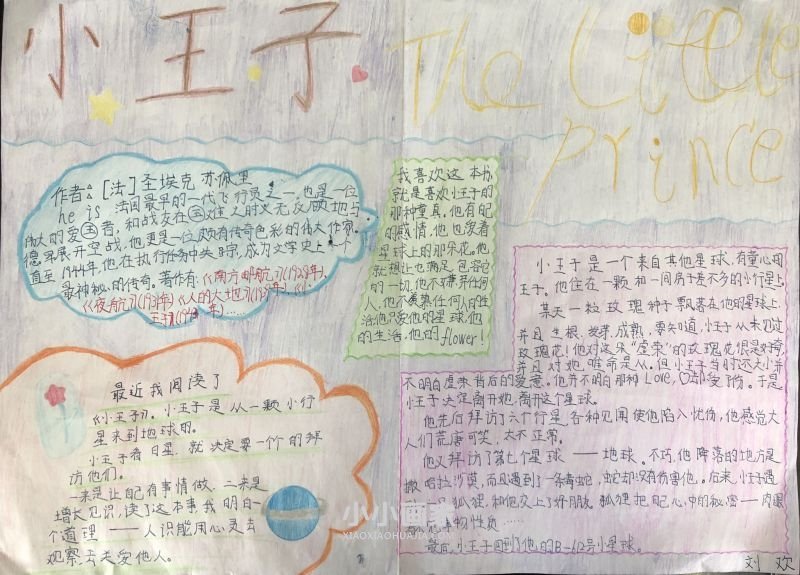 小王子
The Little
prince
作者:[法]圣埃克苏佩里
he is 法国最早的一代飞行员之一,也是一位
伟大的爱国者,和战友在国难之时义无反顾地与
德军展开空战,他更是一位颇有传奇色彩的伟大作家。
直至1944年,他在执行任务中失踪,成为文学史上一个
最神秘的传奇。著作有:《南方邮航》(1929年)、
《夜航》(1931年)《人的大地》(1939年)、《小
王子》(19 年)……
我喜欢这本书,
就是喜欢小王子的
那种童真。他有自己
的感情,他也爱着
星球上的那朵花。他
就想让它满足,包容它
的一切,他不 任何
人,他不 任何人的生
活,他只爱他的星球,他
的生活,他的flower!
小王子是一个来自其他星球,有童心的
王子。他住在一颗和一间房子差不多的小行星上。
某天一粒玫瑰种子飘落在他的星球上,
并且生根、发芽、成熟,要知道,小王子从未见过
玫瑰花!他对这朵“虚荣”的玫瑰花很是好奇,
并且对她,唯命是从。但小王子当时还太小并
不明白虚荣背后的爱意。他并不明白那种Love,只感受了伤。于是,
小王子决定离开她,离开这个星球。
他先后拜访了六个行星,各种见闻使他陷入忧伤,他感觉大
人们荒唐可笑,太不正常。
他又拜访了第七个星球——地球。不巧,他降落的地方是
撒哈拉沙漠,而且遇到了一条毒蛇,蛇却没有伤害他。后来,小王子遇
狐狸,和他交上了好朋友。狐狸把自己心中的秘密——肉眼
看不见事物性质……
最后,小王子回到了他的B-612号小星球。
最近我阅读了
《小王子》。小王子是从一颗小行
星来到地球的。
小王子看日星,就决定要一个的拜
访他们。
一来是让自己有事情做,二来是
增长见识,读了这本书我明白一
个道理——人识能用心灵去
观察,去关爱他人。
小小画家
XIAOXIAOHUAJIA.CN
刘欢